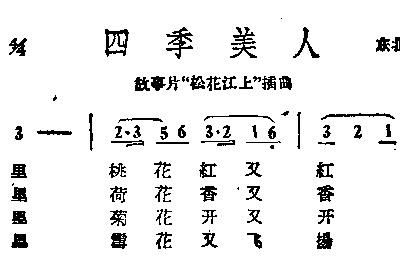 2/4 四季美人 东北
故事片“松花江上”插曲
3 — | 2·3 5 6 3·2 1 6 | 3 2 1
里 桃花红又红
里 荷花香又香
里 菊花开又开
里 雪花又飞扬